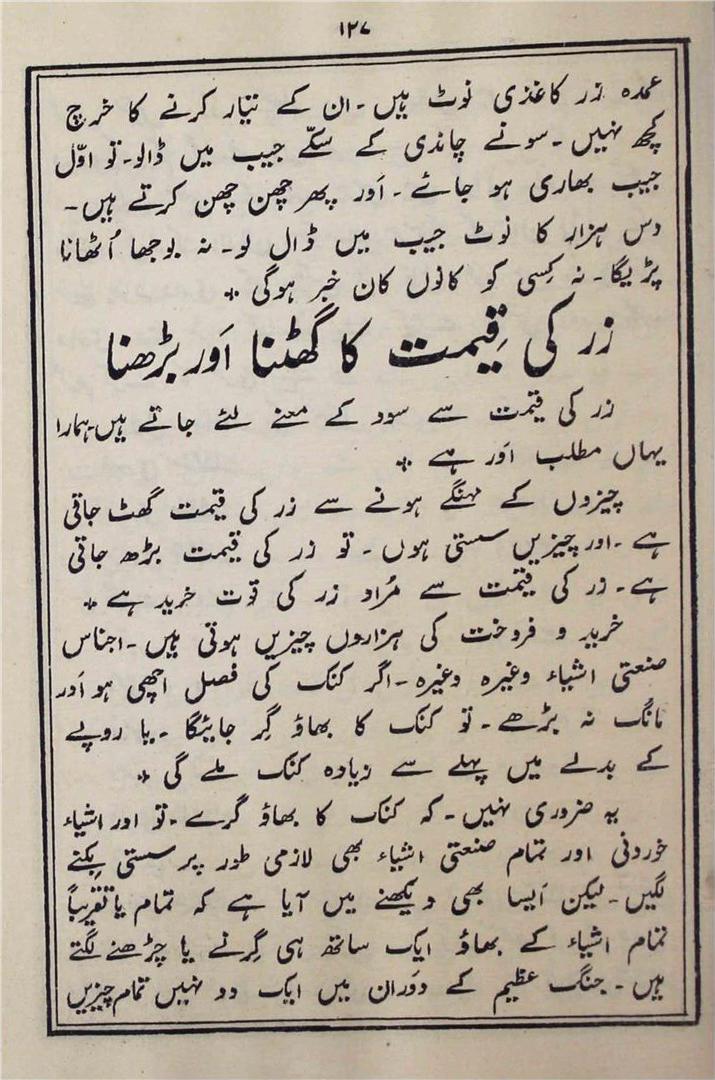 ۱۲۷
عمدہ زر کاغذی نوٹ ہیں۔ان کے تیار کرنے کا خرچ
کچھ نہیں۔سونے چاندی کے سکّے جیب میں ڈالو۔تو اوّل
جیب بھاری ہو جائے۔اَور پھر چھن چھن کرتے ہیں۔
دس ہزار کا نوٹ جیب میں ڈال لو۔نہ بوجھا اُٹھانا
پڑیگا۔نہ کِسی کو کانوں کان خبر ہوگی ٭
زر کی قِیمت کا گھٹنا اَور بڑھنا
زر کی قیمت سے سود کے معنے لئے جاتے ہیں۔ہمارا
یہاں مطلب اَور ہے ٭
چیزوں کے مہنگے ہونے سے زر کی قیمت گھٹ جاتی
ہے۔اور چیزیں سستی ہوں۔تو زر کی قیمت بڑھ جاتی
ہے۔زر کی قیمت سے مُراد زر کی قوّت خرید ہے ٭
خرید و فروخت کی ہزاروں چیزیں ہوتی ہیں۔اجناس
صنعتی اشیاء وغیرہ وغیرہ۔اگر کنک کی فصل اچھی ہو اَور
مانگ نہ بڑھے۔تو کنک کا بھاؤ گِر جائیگا۔یا روپے
کے بدلے میں پہلے سے زیادہ کنک ملے گی ٭
یہ ضروری نہیں۔کہ کنک کا بھاؤ گرے۔تو اور اشیاء
خوردنی اور تمام صنعتی اشیاء بھی لازمی طور پر سستی بِکنے
لگیں۔لیکن اَیسا بھی دیکھنے میں آیا ہے کہ تمام یا تقریباً
تمام اشیاء کے بھاؤ ایک ساتھ ہی گِرنے یا چڑھنے لگتے
ہیں۔جنگ عظیم کے دَوران میں ایک دو نہیں تمام چیزیں